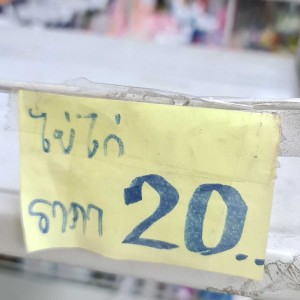 ไข่ไก่
ราคา 20..